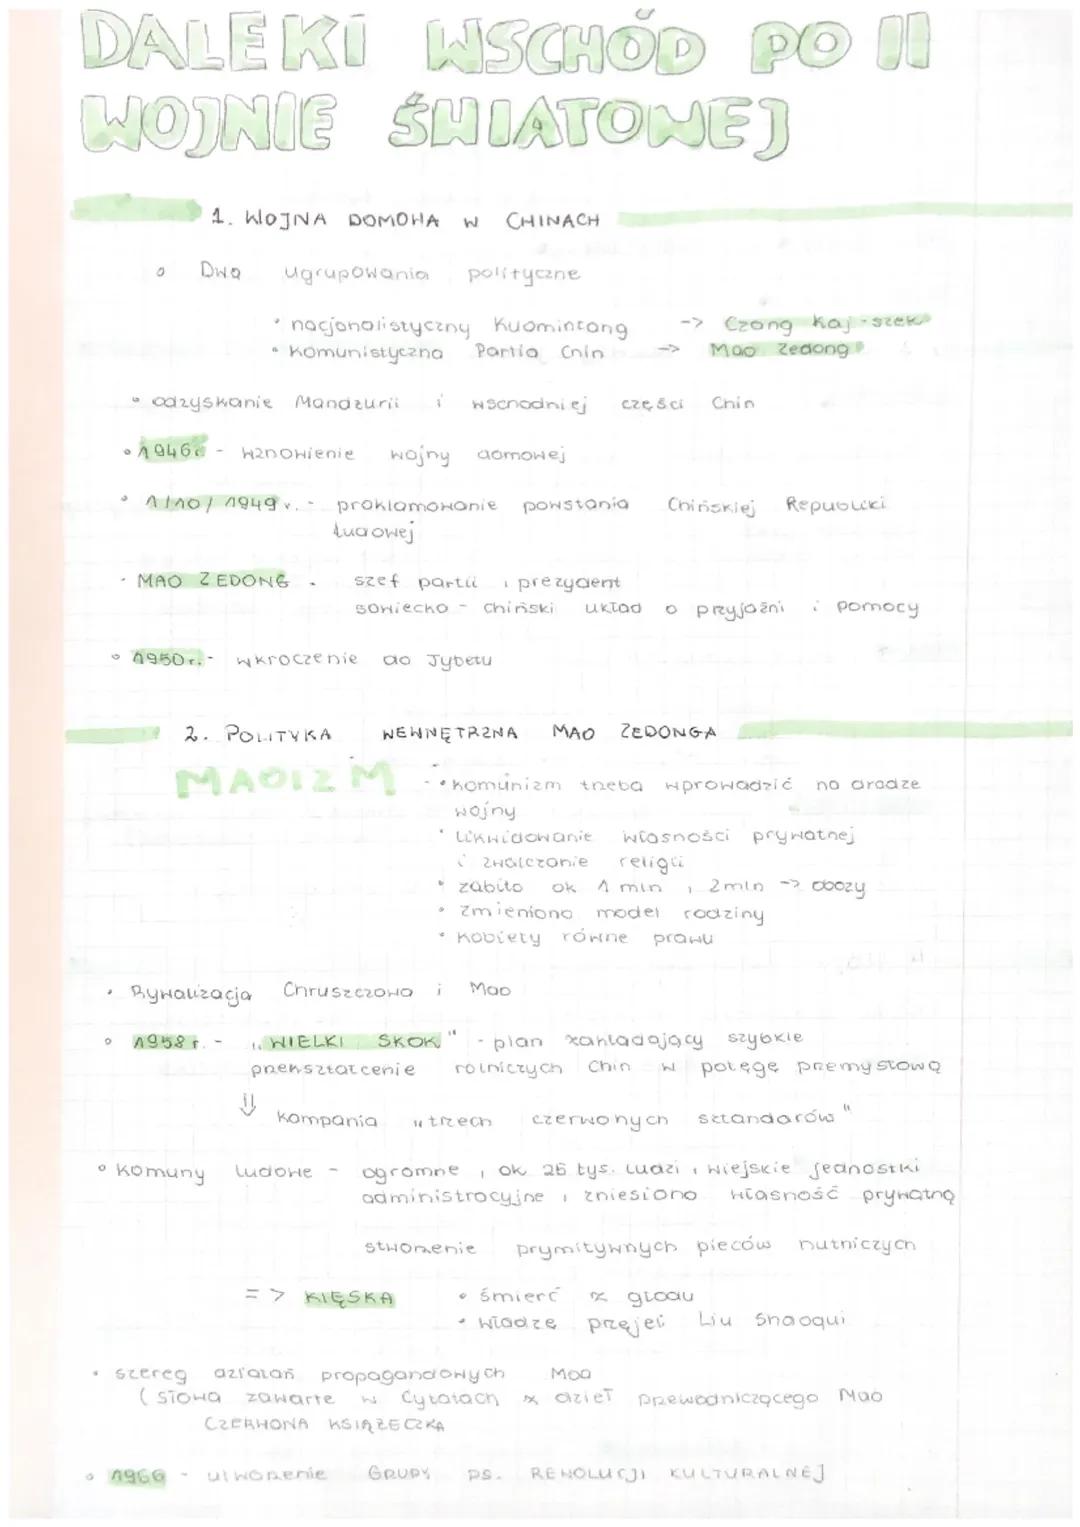 DALEKI WSCHÓD PO II
WOJNIE ŚWIATOWEJ
1. WOJNA DOMOWA W CHINACH
Dwa ugrupowania polityczne
nacjonalistyczny Kuomintang -> Czang Kaj-szek
Komunistyczna Partia Chin -> Mao Zedong
odzyskanie Mandżurii i wschodniej części Chin
1946r - wznowienie wojny domowej
1/10/1949 r. - proklamowanie powstania Chińskiej Republiki
Ludowej
MAO ZEDONG - szef partii i prezydent
sowiecko - chiński układ o przyjaźni i pomocy
1950r. - wkroczenie do Tybetu
2. POLITYKA WEWNĘTRZNA MAO ZEDONGA
MAOIZM - komunizm trzeba wprowadzić na drodze
wojny
likwidowanie własności prywatnej
i zwalczanie religii
zabito ok 1 mln , 2mln -> obozy
zmieniono model rodziny
kobiety równe prawu
Rywalizacja Chruszczowa i Mao
1958 r. - "WIELKI SKOK" - plan zakładający szybkie
przekształcenie rolniczych Chin w potęgę przemysłową
⇓ kampania "trzech czerwonych sztandarów"
Komuny ludowe - ogromne , ok 26 tys. ludzi , wiejskie jednostki
administracyjne , zniesiono własność prywatną
stworzenie prymitywnych pieców hutniczych
=> KLĘSKA • śmierć z głodu
• władzę przejął Liu Shaoqui
szereg działań propagandowych Mao
(słowa zawarte w Cytatach z dzieł przewodniczącego Mao
CZERWONA KSIĄŻECZKA
1966 - utworzenie GRUPY DS. REWOLUCJI KULTURALNEJ